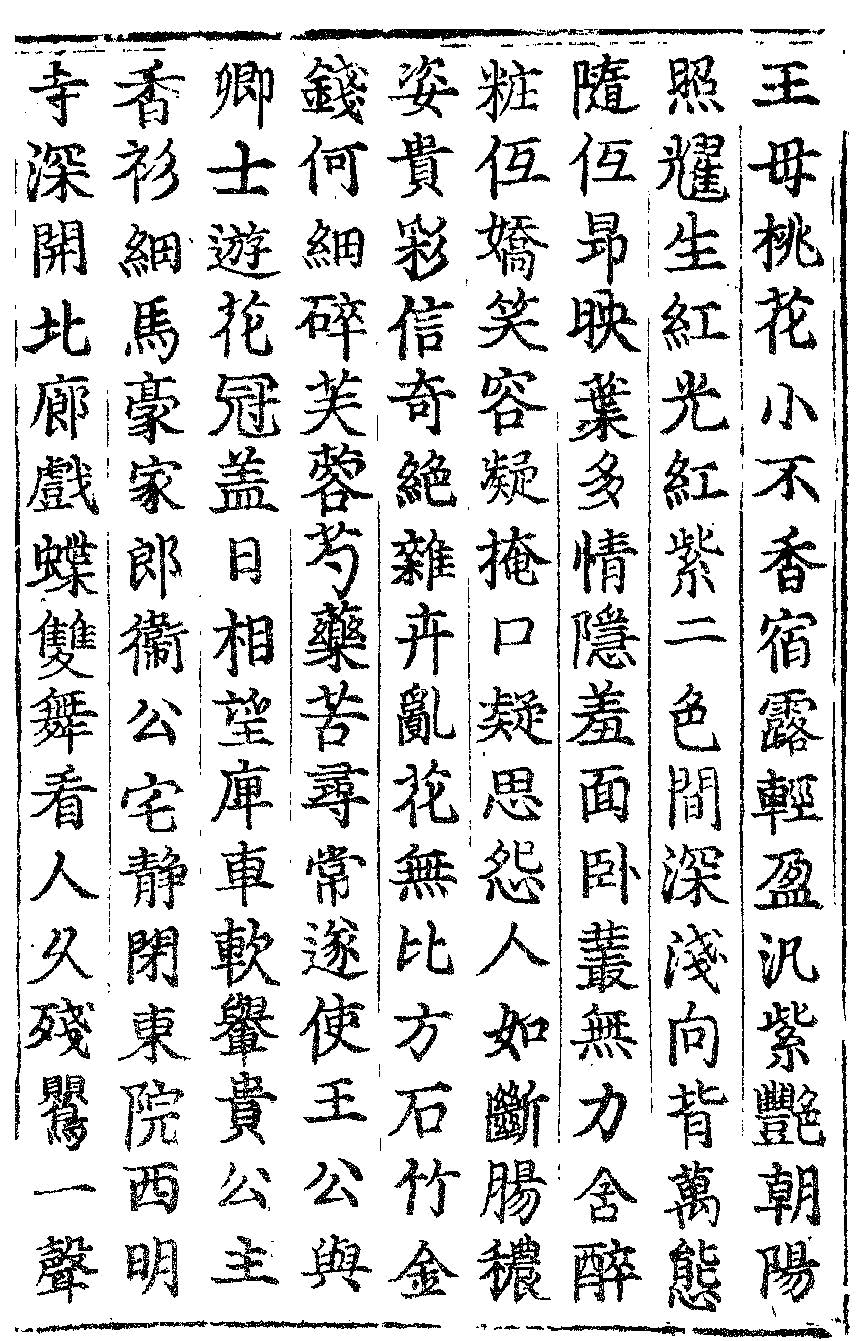 王母桃花小不香宿露輕盈汎紫艷朝陽
照耀生紅光紅紫二色間深淺向背萬態
隨低昂映葉多情隱羞面卧叢無力含醉
粧低嬌笑容凝掩口凝思怨人如斷腸穠
姿貴彩信奇絶雜卉亂花無比方石竹金
錢何細碎芙蓉芍藥苦尋常遂使王公與
卿士遊花冠盖日相望庳車軟轝貴公主
香衫細馬豪家郎衞公宅静閉東院西明
寺深開北廊戲蝶雙舞看人久殘鸎一聲